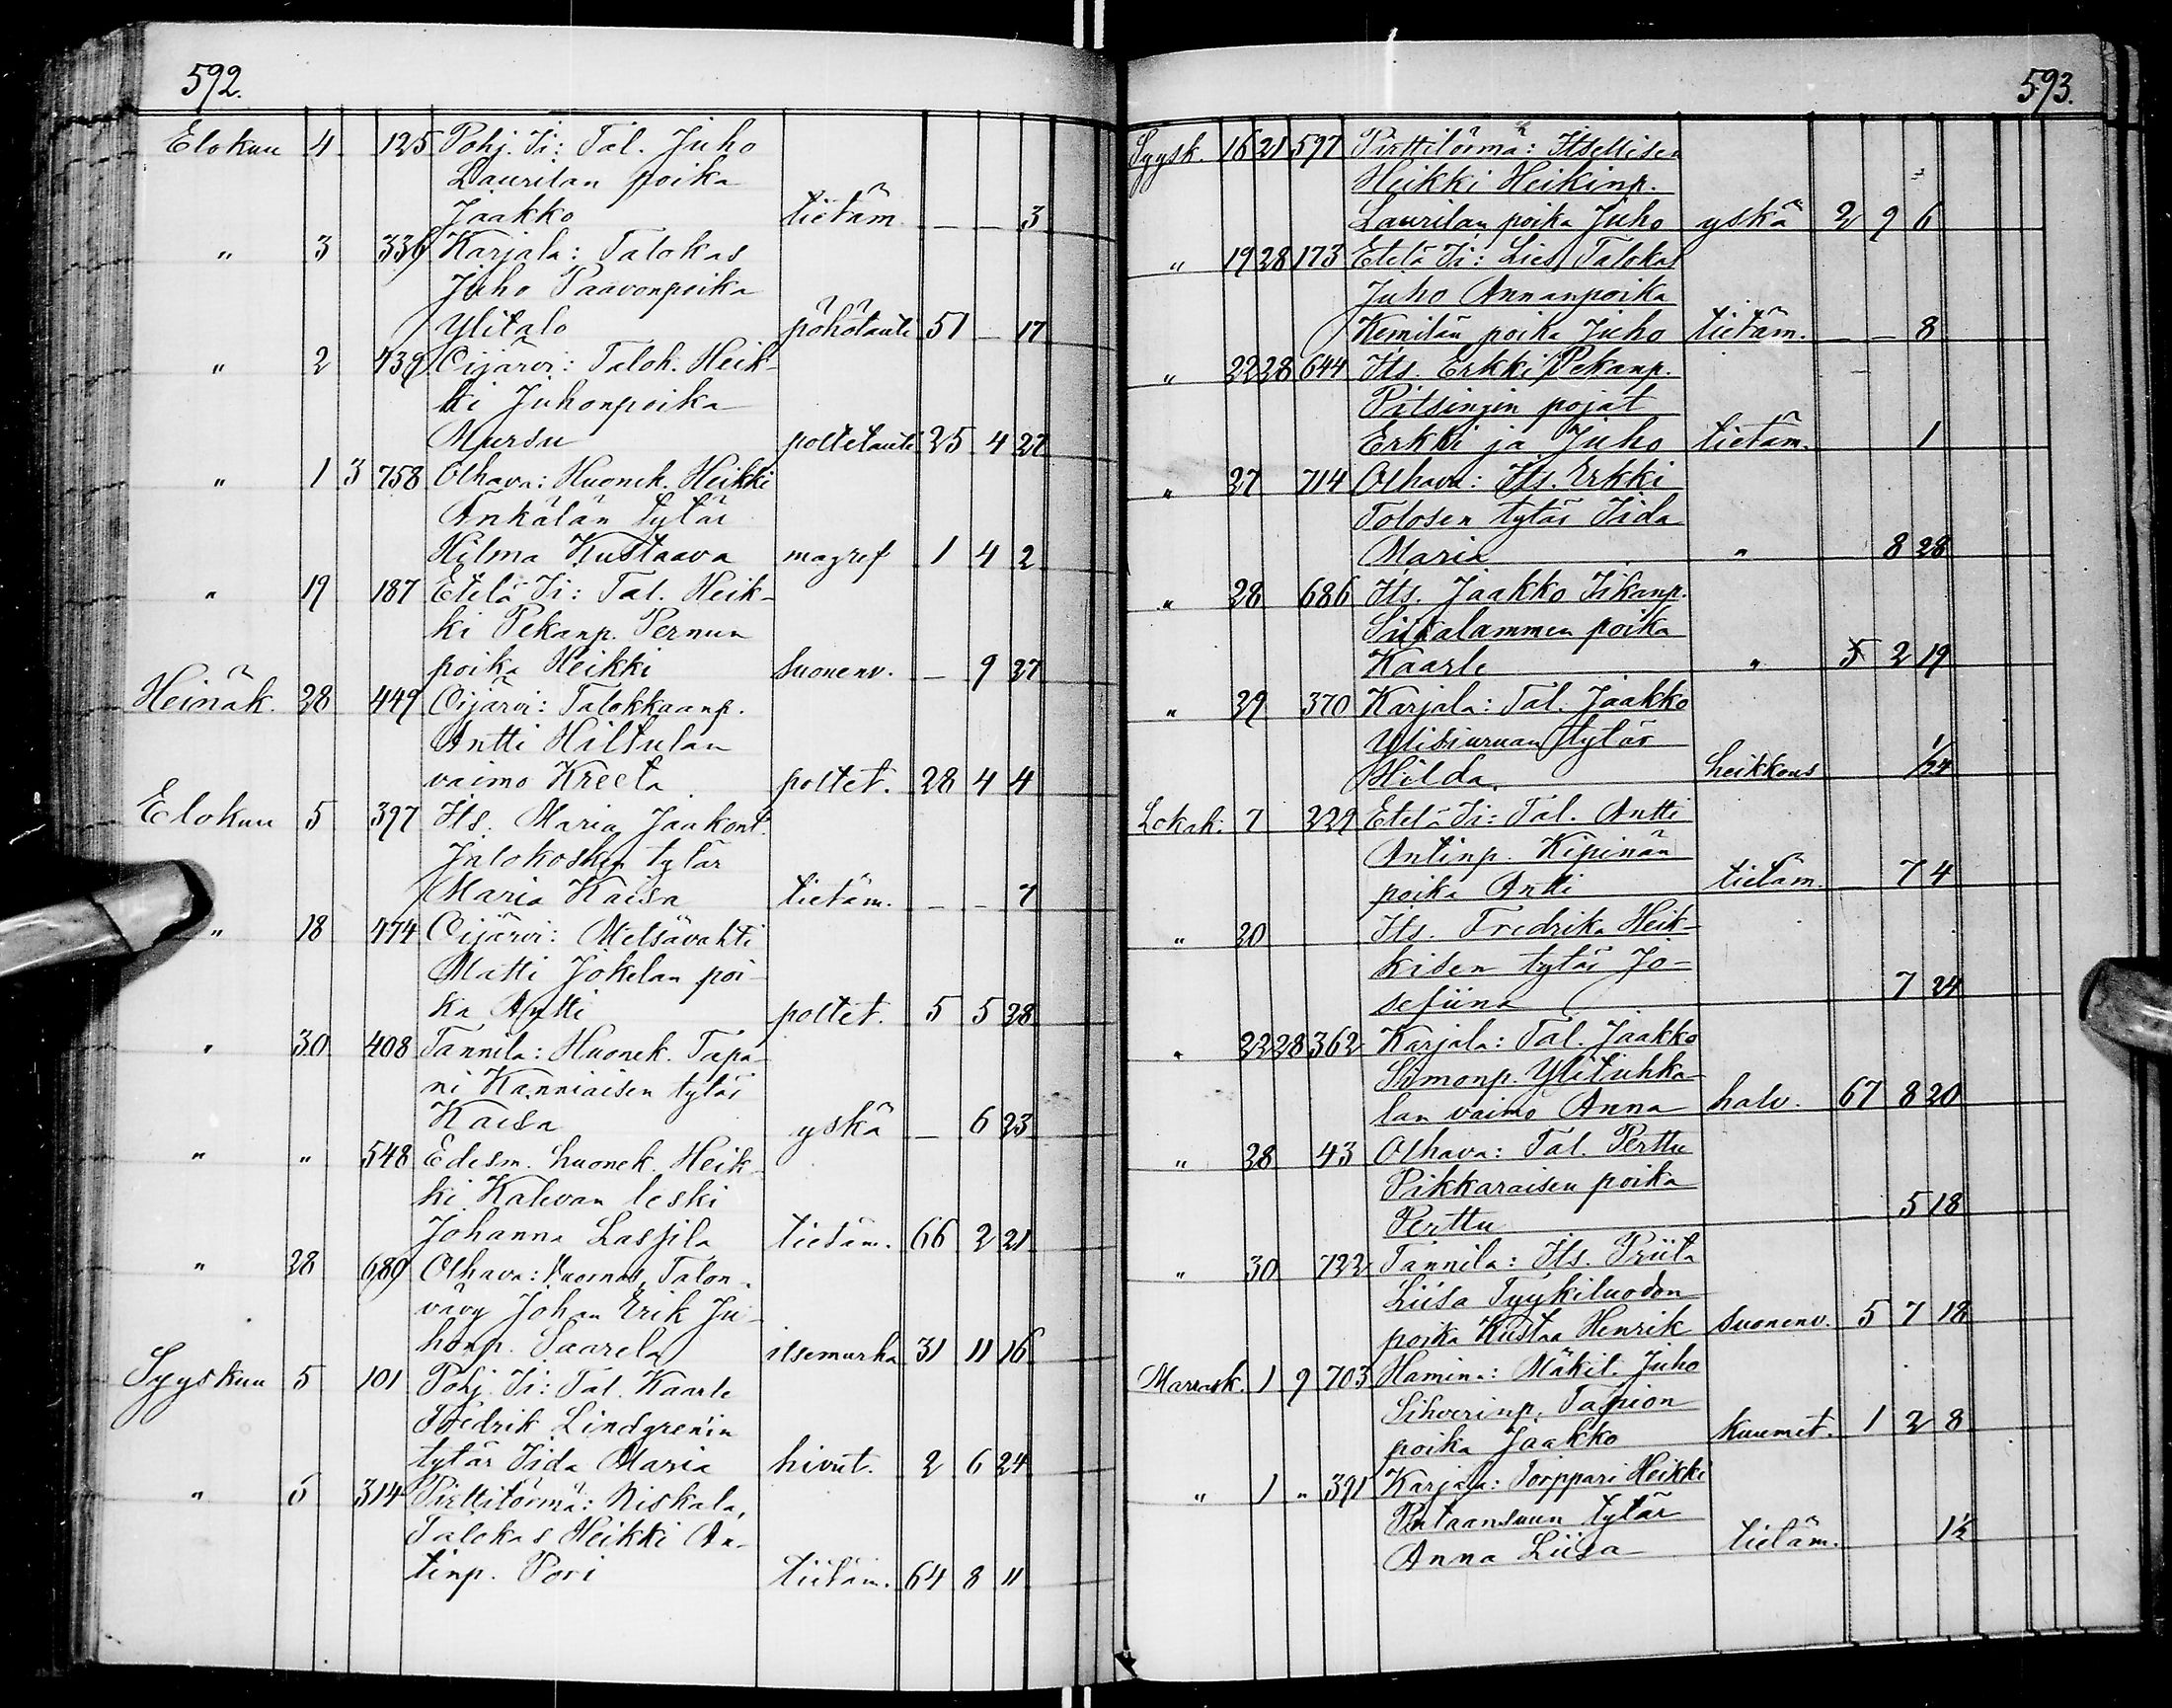 592.
Elokuu 4 125 Pohj. Ii: Tal. Juho
Laurilan poika
Jaakko tietäm. — — 3
" 3 336 Karjala: Talokas
Juho Paavonpoika
Ylitalo pöhötauti 51 — 17
" 2 439 Oijärvi: Talok. Heik-
ki Juhonpoika
Mursu poltetauti 25 4 27
" 1 3 758 Olhava: Huonek. Heikki
Änkälän tytär
Hilma Kustaava magref 1 4 2
" 19 187 Etelä Ii: Tal. Heik-
ki Pekanp. Pernun
poika Heikki suonenv. — 9 27
Heinäk. 28 449 Oijärvi: Talokkaanp.
Antti Hiltulan
vaimo Kreeta poltet. 28 4 4
Elokuu 5 397 Its. Maria Jaakont.
Jnlokosken tytär
Maria Kaisa tietäm. — — 7
" 18 474 Oijärvi: Metsävahti
Matti Jokelan poi-
ka Antti poltet. 5 5 28
" 30 408 Tannila: Huonek. Tapa-
ni Kanniaisen tytär
Kaisa yskä — 6 23
" " 548 Edesm. huonek. Heik-
ki Kalevan leski
Johanna Lassila tietäm. 66 2 21
" 28 689 Olhava: Vuornos, Talon-
vävy Johan Erik Ju-
honp. Saarela itsemurha 31 11 16
Syyskuu 5 101 Pohj. Ii: Tal. Kaarle
Fredrik Lindgren'in
tytär Iida Maria hivut. 2 6 24
" 5 314 Pirttitörmä: Niskala,
Talokas Heikki An-
tinp. Pori tietäm. 64 8 11
593.
Syysk. 16 21 597 Pirttitörmä: Itsellisen
Heikki Heikinp.
Laurilan poika Juho yskä 2 9 6
" 19 28 173 Etelä Ii: Lies, Talokas
Juho Annanpoika
Kemilän poika Juho tietäm. — — 8
" 22 28 644 Its. Erkki Pekanp.
Pitsinjin pojat
Erkki ja Juho tietäm. 1
" 27 714 Olhava: Its. Erkki
Tolosen tytär Iida
Maria " 8 28
" 28 686 Its. Jaakko Iikanp.
Siikalammen poika
Kaarle " 5 2 19
" 29 370 Karjala: Tal. Jaakko
Ylisiuruan tytär
Hilda. heikkous 1/24
Lokak. 7 229 Etelä Ii: Tal. Antti
Antinp. Kipinän
poika Antti tietäm. — 7 4
" 20 Its. Fredrika Heik-
kisen tytär Jo-
sefiina 7 24
" 22 28 362 Karjala: Tal. Jaakko
Simonp. Ylituhka-
lan vaimo Anna halv. 67 8 20
" 28 43 Olhava: Tal. Perttu
Pikkaraisen poika
Perttu — 5 18
" 30 722 Tannila: Its. Priita
Liisa Tyykiluodon
poika Kustaa Henrik suonenv. 5 7 18
Marrask. 1 9 703 Hamina: Mäkit. Juho
Sihverinp. Tapion
poika Jaakko kuumet. 1 2 8
" 1 " 391 Karjala: Torppari Heikki
Pataansuun tytär
Anna Liisa tietäm. 1½